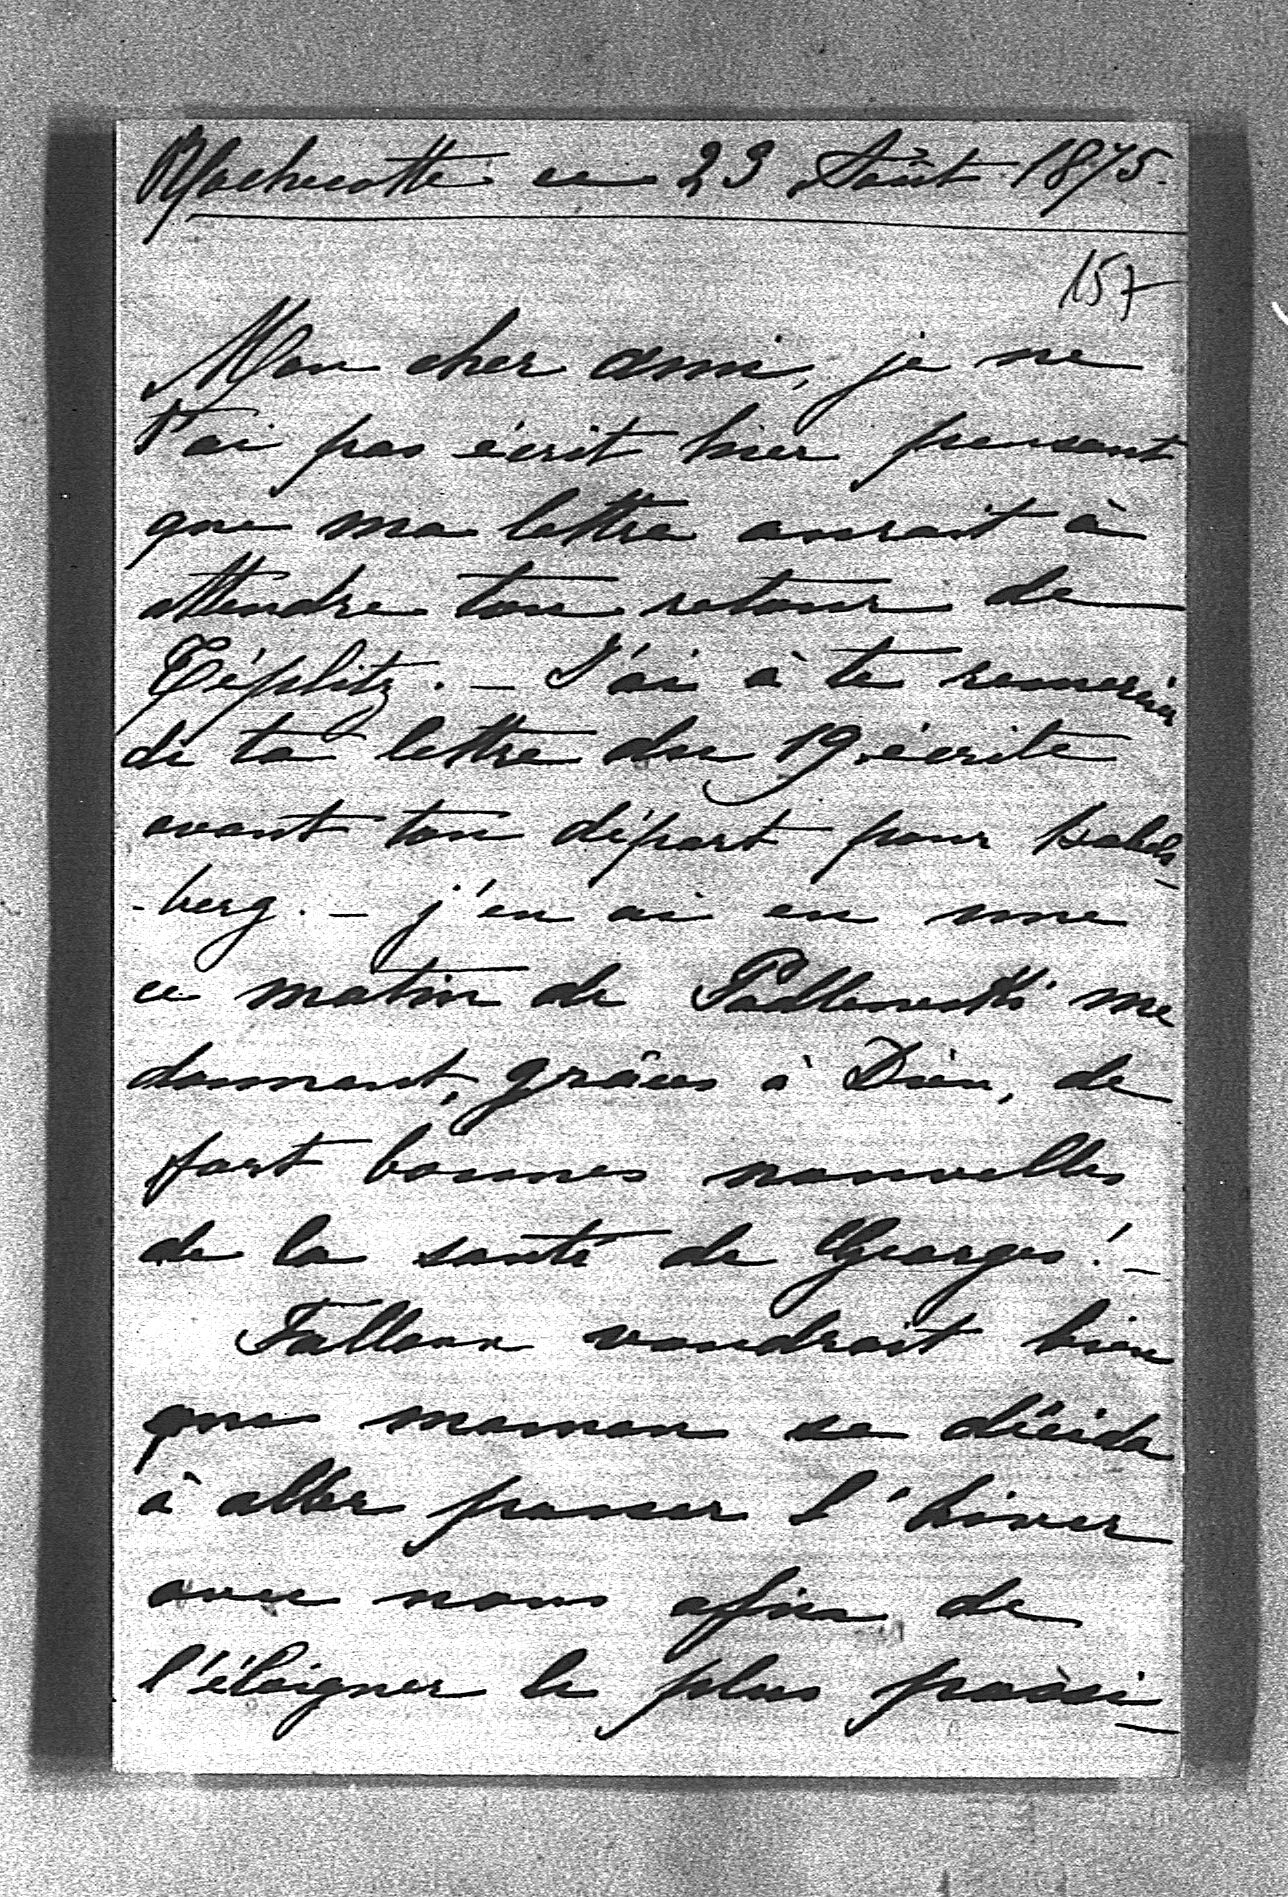 Rochecotte ce 23 Août 1875.
157
Mon cher ami, je ne
t'ai pas écrit hier pensant
que ma lettre aurait à
attendre ton retour de
Téplitz. – J'ai à te remercier
de ta lettre du 19 écrite
avant ton départ pour
-berg. – j'en ai eu une
ce matin de me
donnant, grâces à Dieu, de
fort bonnes nouvelles
de la santé de Georges! –
Falloux voudrait bien
que maman se décida
à aller passer l'hiver
avec nous afin de
l'éloigner le plus possi-